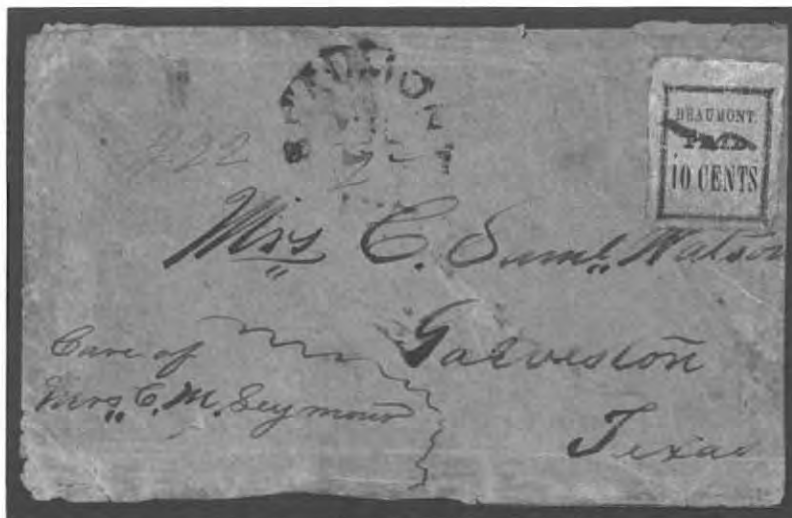 BEAUMONT.
PAID
10 CENTS
222
Mrs C. Saml. Watson
Galveston
Texas
Care of
Mrs. C. M. Seymour